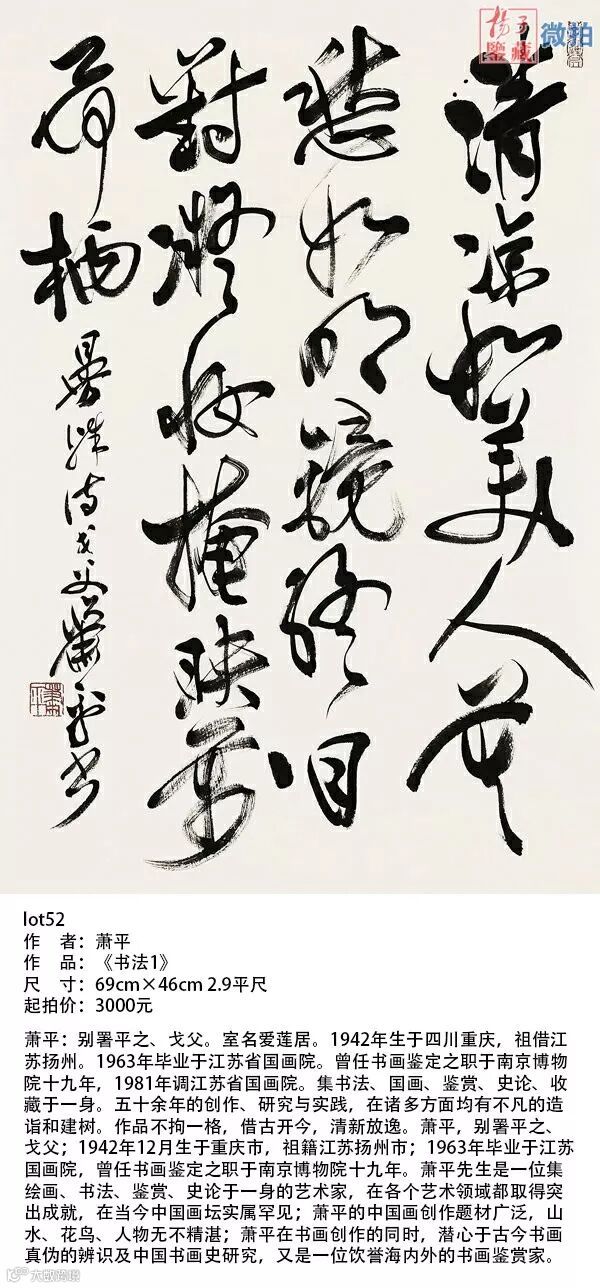 揚子
鑒藏
微拍
清凉如美人莫
愁如明鏡終日
對凝妝掩映萬
荷柄
曼殊诗戈父蕭平书
lot52
作 者：萧平
作 品：《书法1》
尺 寸：69cm×46cm 2.9平尺
起拍价：3000元
萧平：别署平之、戈父。室名爱莲居。1942年生于四川重庆，祖借江
苏扬州。1963年毕业于江苏省国画院。曾任书画鉴定之职于南京博物
院十九年，1981年调江苏省国画院。集书法、国画、鉴赏、史论、收
藏于一身。五十余年的创作、研究与实践，在诸多方面均有不凡的造
诣和建树。作品不拘一格，借古开今，清新放逸。萧平，别署平之、
戈父；1942年12月生于重庆市，祖籍江苏扬州市；1963年毕业于江苏
国画院，曾任书画鉴定之职于南京博物院十九年。萧平先生是一位集
绘画、书法、鉴赏、史论于一身的艺术家，在各个艺术领域都取得突
出成就，在当今中国画坛实属罕见；萧平的中国画创作题材广泛，山
水、花鸟、人物无不精湛；萧平在书画创作的同时，潜心于古今书画
真伪的辨识及中国书画史研究，又是一位饮誉海内外的书画鉴赏家。
大数跨境